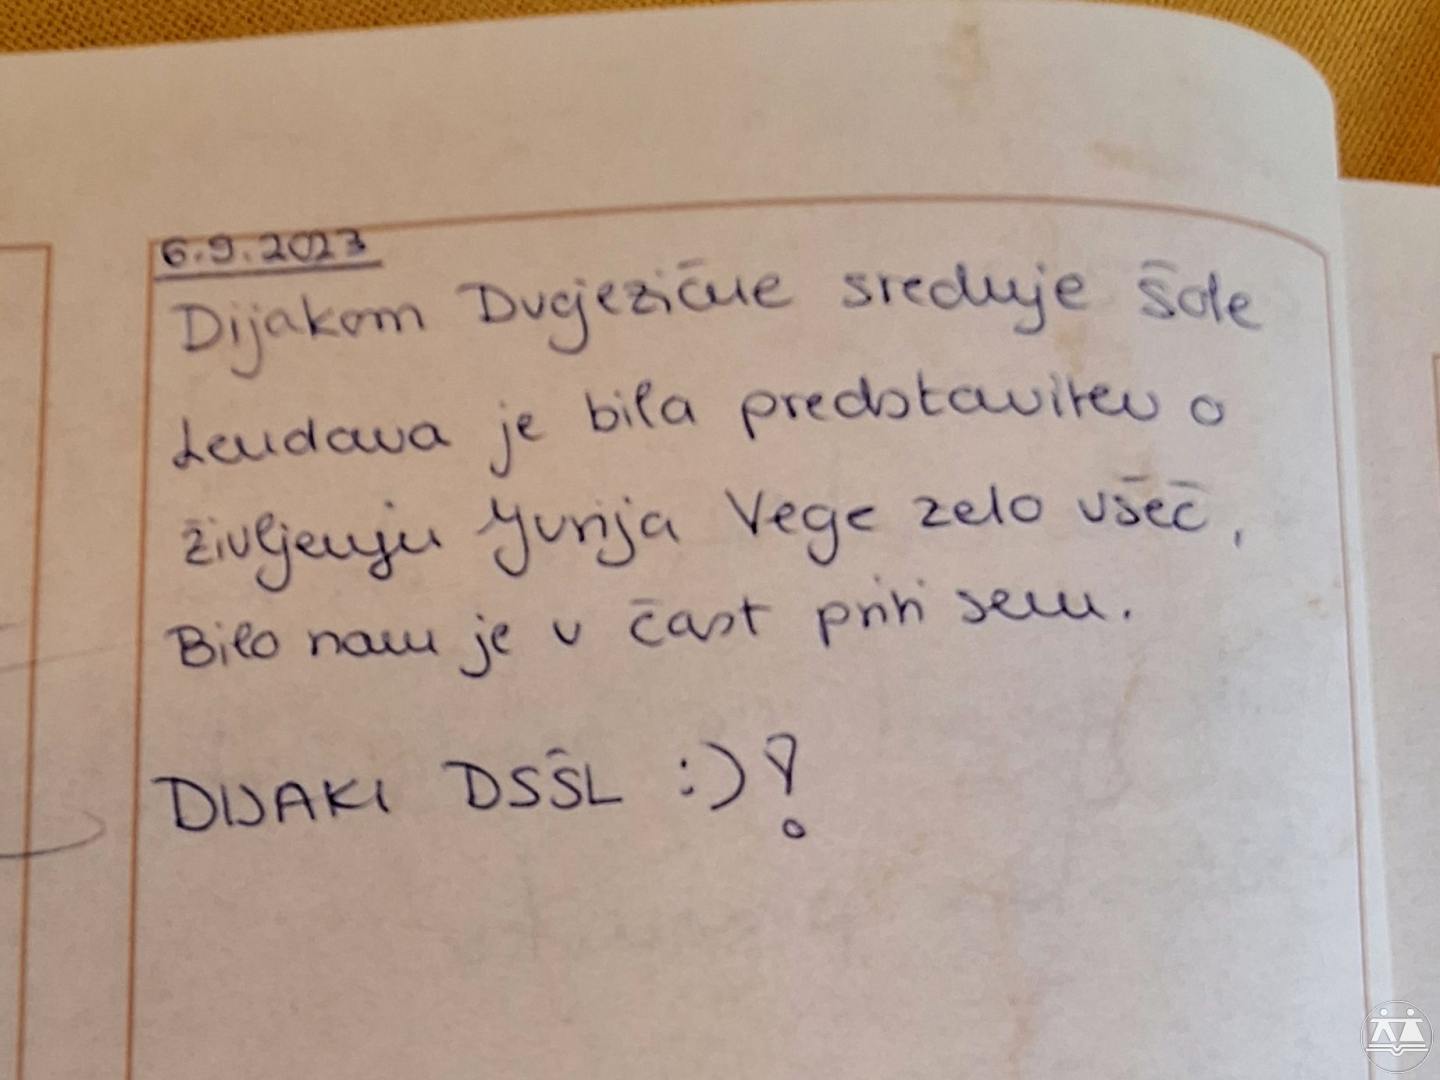 6.9.2023
Dijakom Dvojezične srednje šole
Lendava je bila predstavitev o
življenju Jurija Vege zelo všeč,
Bilo nam je v čast priti sem.
DIJAKI DSŠL :)!